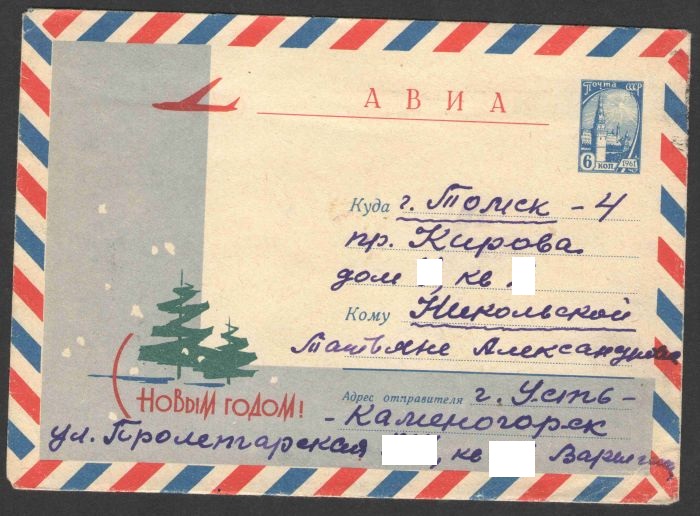 АВИА
Почта СССР
6 коп 1961
Куда г. Томск - 4
пр. Кирова
дом , кв
Кому Никольской
Татьяне Александровне
С НОВЫМ ГОДОМ!
Адрес отправителя г. Усть-
- Каменогорск
ул. Пролетарская , кв